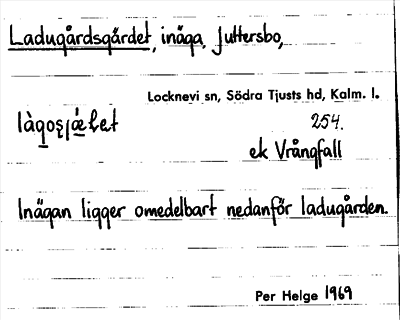 Ladugårdsgärdet, inäga, Juttersbo,
Locknevi sn, Södra Tjusts hd, Kalm. l.
254.
ek Vrångfall
Inägan ligger omedelbart nedanför ladugården.
Per Helge 1969